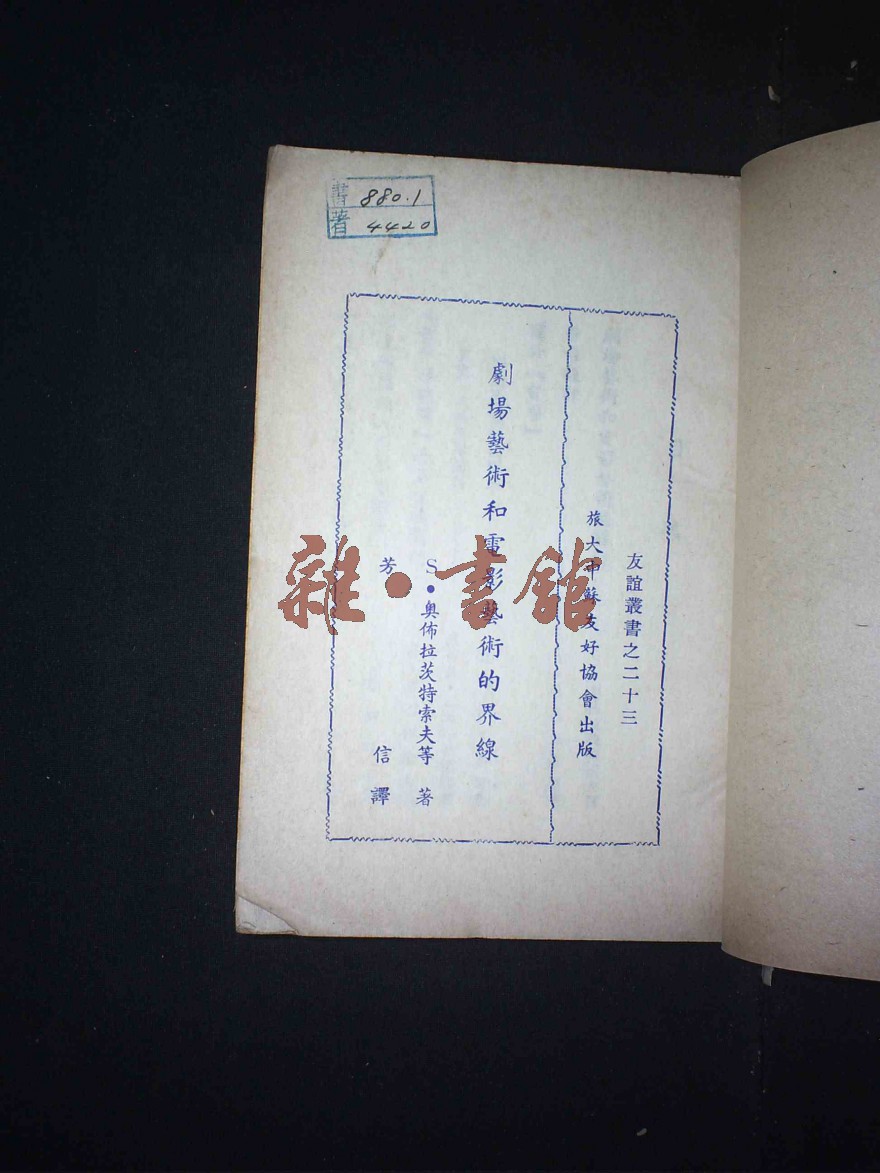 書 880.1
著 4420
友誼叢書之二十三
旅大中蘇友好協會出版
劇場藝術和電影藝術的界線
S·奧佈拉茨特索夫等 著
芳 信 譯
雜·書館